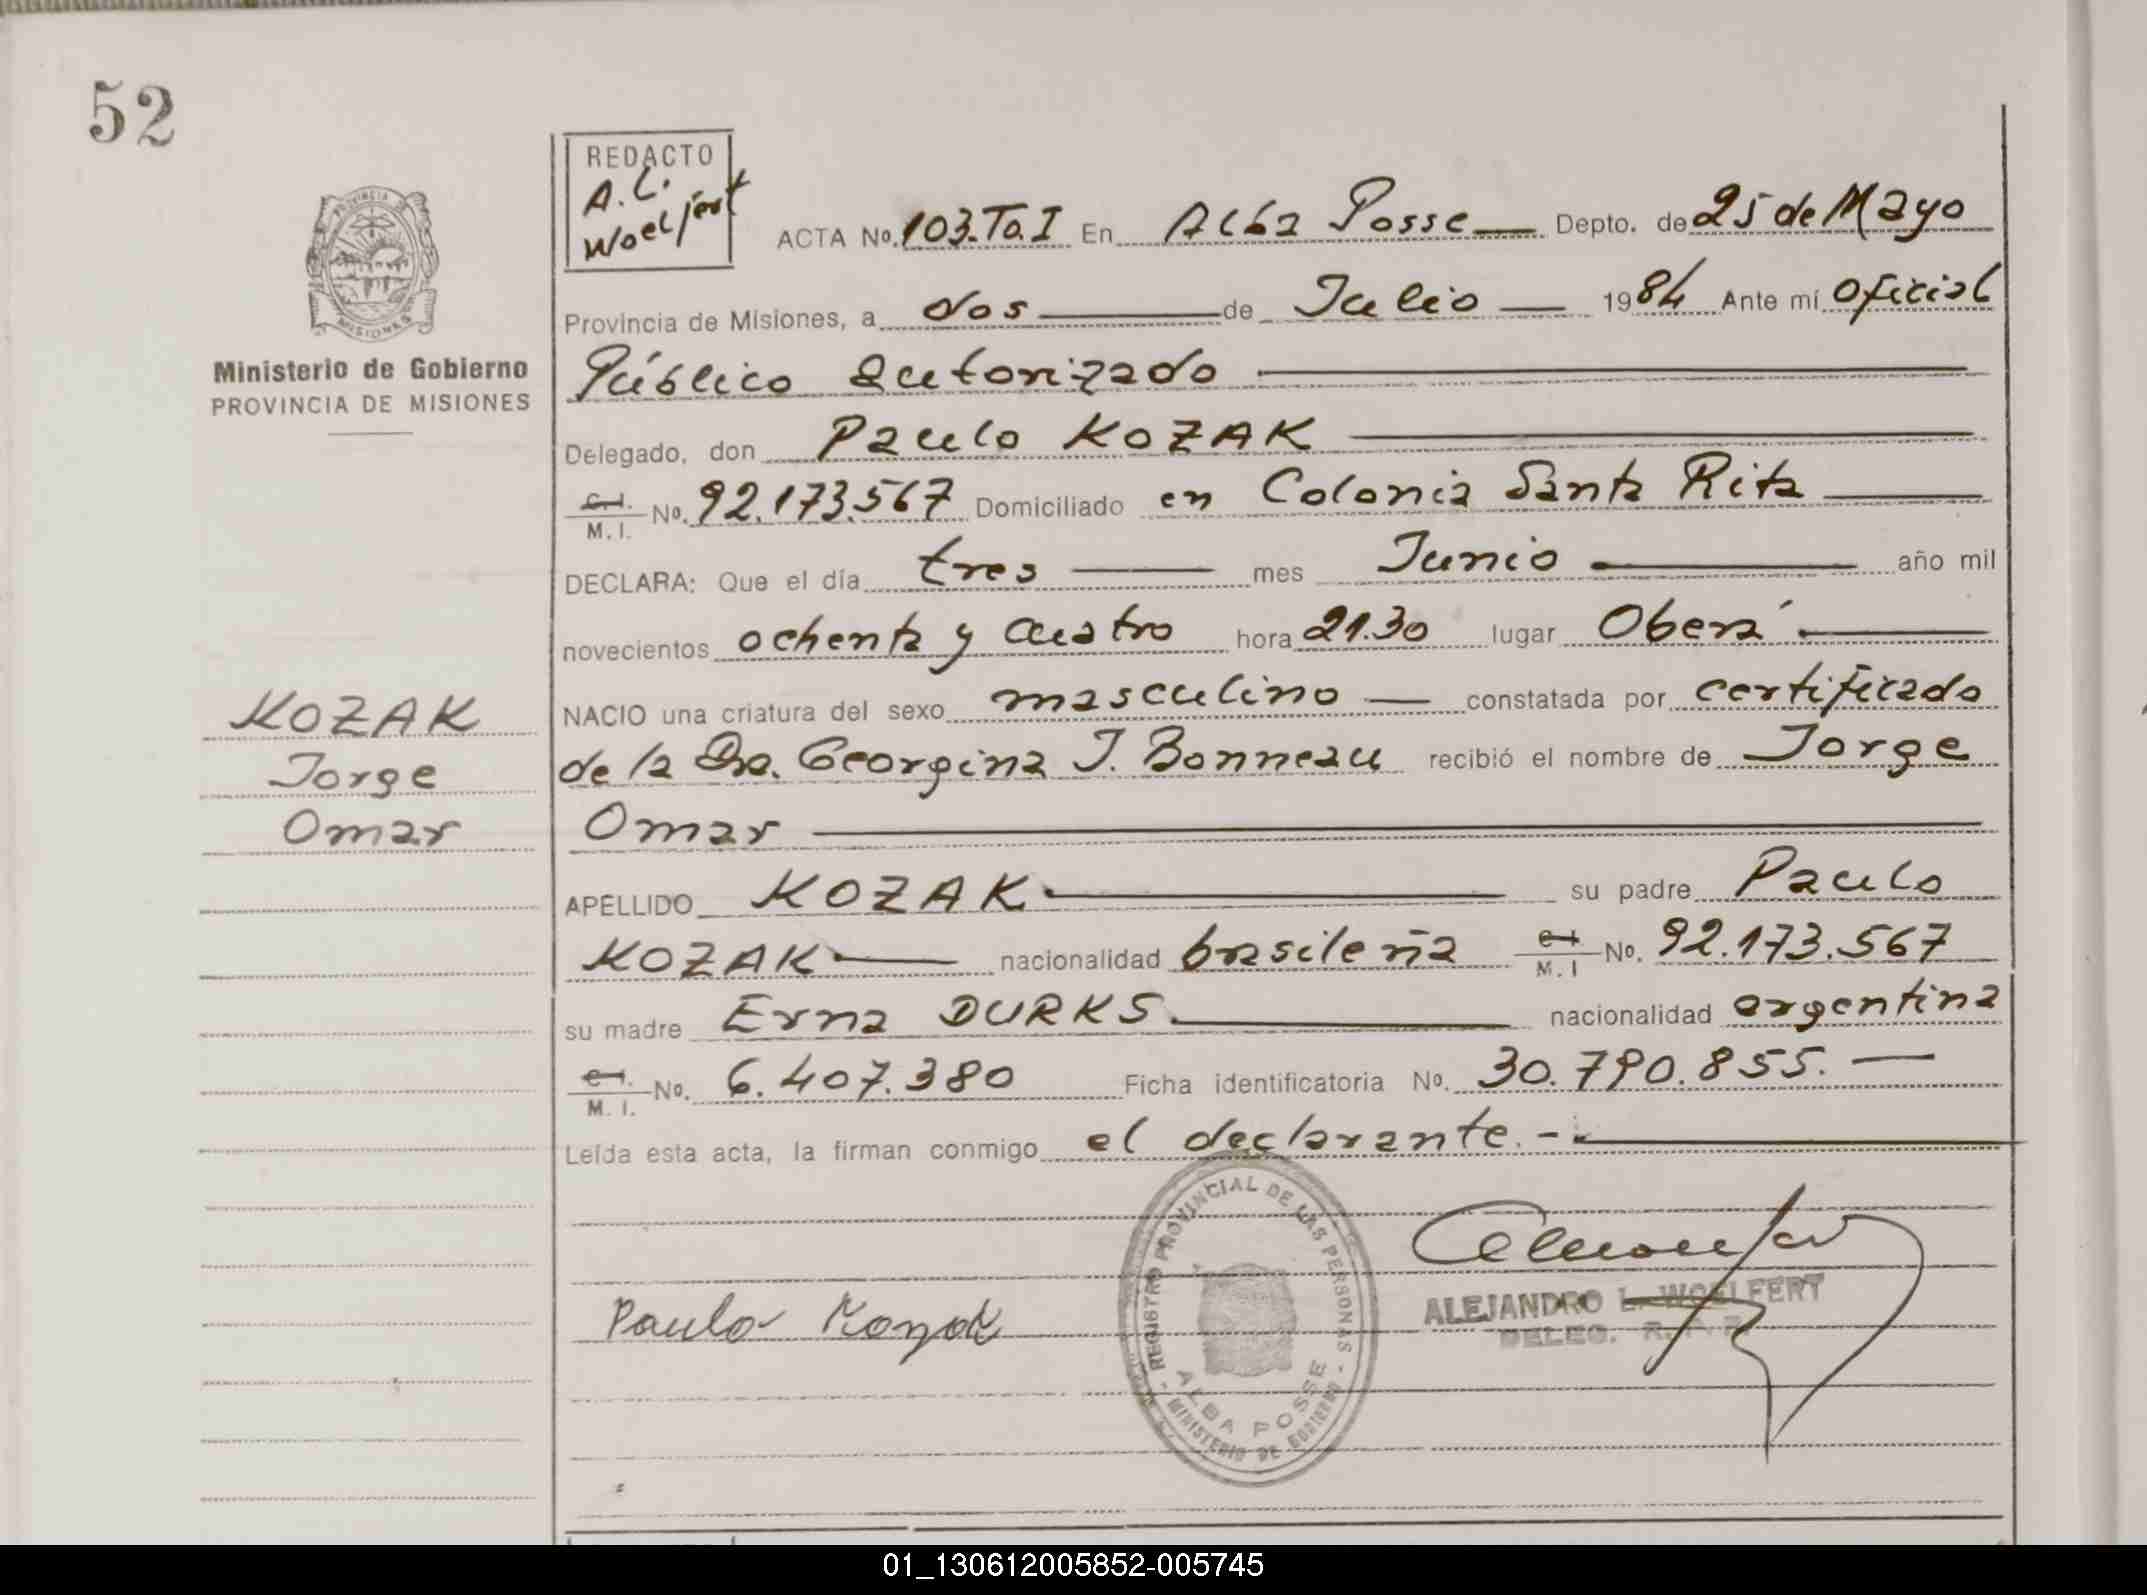 52
REDACTO
A.L.
Woelfert
ACTA No. 103.To.I En Alba Posse Depto. de 25 de Mayo
Provincia de Misiones, a dos de Julio 1984 Ante mí Oficial
Público autorizado
Ministerio de Gobierno
PROVINCIA DE MISIONES
Delegado, don Paulo KOZAK
C.I. / M.I. No. 92.173.567 Domiciliado en Colonia Santa Rita
DECLARA: Que el día tres mes Junio año mil
novecientos ochenta y cuatro hora 21.30 lugar Oberá
NACIO una criatura del sexo masculino constatada por certificado
de la Dra. Georgina J. Bonneau recibió el nombre de Jorge
Omar
KOZAK
Jorge
Omar
APELLIDO KOZAK su padre Paulo
KOZAK nacionalidad brasileña C.I. / M.I No. 92.173.567
su madre Erna DURKS. nacionalidad argentina
C.I. / M.I. No. 6.407.380 Ficha identificatoria No. 30.790.855.—
Leída esta acta, la firman conmigo el declarante.-
REGISTRO PROVINCIAL DE LAS PERSONAS - MINISTERIO DE GOBIERNO -
ALBA POSSE
Paulo Kozak
ALEJANDRO L. WOELFERT
DELEG. R. P. P.
01_130612005852-005745